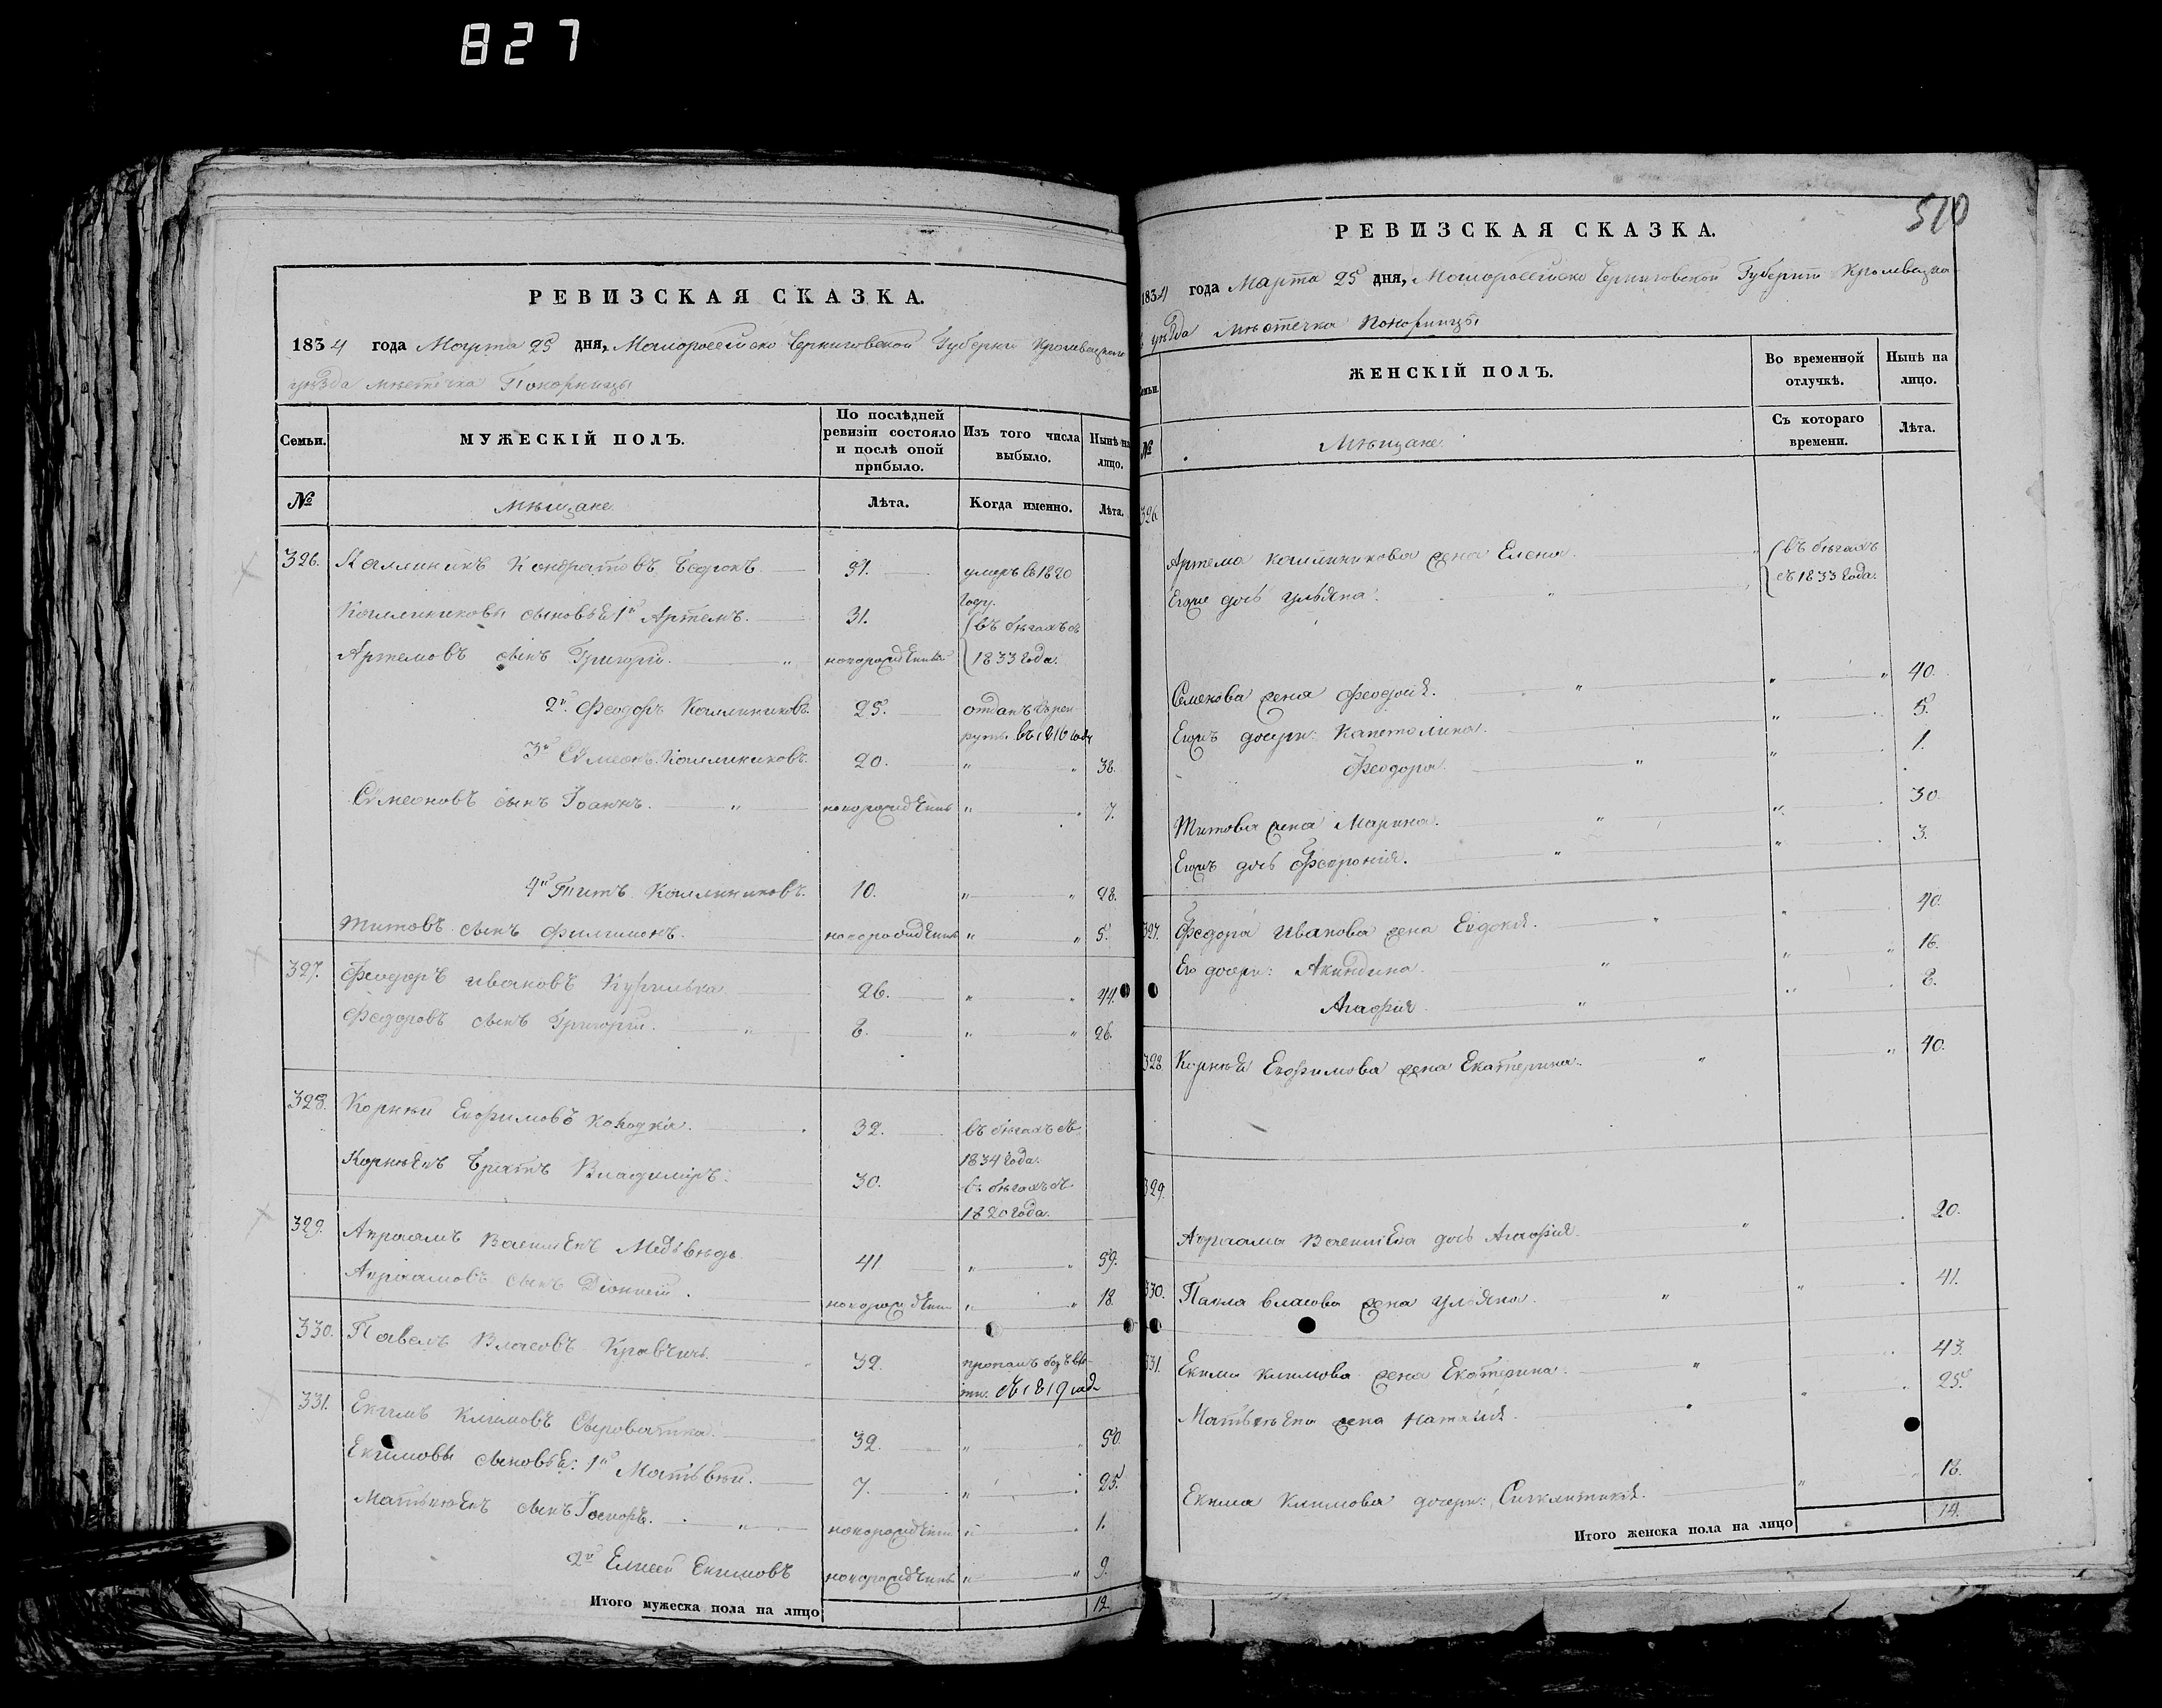 827
РЕВИЗСКАЯ СКАЗКА.
1834 года Марта 25 дня, Малороссійско Черниговской Губерніи Кролевецкаго
уѣзда мѣстечка Понорницы
Семьи. МУЖЕСКІЙ ПОЛЪ. По послѣдней ревизіи состояло и послѣ оной прибыло. Изъ того числа выбыло. Нынѣ на лицо.
№ Мѣщане Лѣта. Когда именно. Лѣта.
326. Каллиникъ Кондратовъ 51. умеръ въ 1820
году.
Каллиниковы сыновья 1й Артемъ. 31. въ бѣгахъ съ
Артемовъ сынъ Григорій. новорожденный 1833 года.
2й Феодоръ Каллиниковъ. 25. отданъ въ рек
руты въ 1816 году
3й Сѵмеонъ Каллиниковъ. 20. " " 38.
Сѵмеоновъ сынъ Іоаннъ. " новорожденный " 7.
4й Титъ Каллиниковъ. 10. " " 28.
Титовъ сынъ Филимонъ. новорожденный " " 5.
327. Феодоръ Ивановъ Курилька 26. " " 44.
Феодоровъ сынъ Григорій. " 8. " " 26.
328. Корнѣй Евфимовъ 32. въ бѣгахъ съ
1834 года.
Корнѣевъ братъ Владиміръ. 30. въ бѣгахъ съ
1820 года.
329. Авраамъ Васильевъ Медьвѣдь 41 " " 59.
Авраамовъ сынъ Діонисій. новорожден " " 18.
330. Павелъ Власовъ Кравчихъ. 32. пропалъ безъ вѣ
сти съ 1819 года
331. Екимъ Климовъ Сыроватка. 32. " " 50.
Екимовы сыновья: 1й Матьвѣй. 7. " 25.
Матьвѣевъ сынъ " новорожден " 1.
2й Елисей Екимовъ новорожденный " " 9.
Итого мужеска пола на лицо 12.
510
РЕВИЗСКАЯ СКАЗКА.
1834 года Марта 25 дня, Малороссійско Черниговской Губерніи Кролевецка
уѣзда Мѣстечка Понорницы
Семьи. ЖЕНСКІЙ ПОЛЪ. Во временной отлучкѣ. Нынѣ на лицо.
№ Мѣщане Съ котораго времени. Лѣта.
326.
Артема Каллиникова жена Елена. въ бѣгахъ
Его же дочь Ульяна. " съ 1833 года.
Семенова жена Феодосія. " " " 40.
Еяжъ дочери: Капетолина. " 5.
Феодора. " " 1.
Титова жена Марина. " " 30.
Еяжъ дочь Феврония. " " 3.
327. Федора Иванова жена Евдокія. " " 40.
Его дочери: Акиндина. " " " 16.
Агафія " " 8.
328. Корнѣя Евфимова жена Екатерина. " " 40.
329.
Авраама Васильева дочь Агафія. " 20.
330. Павла Власова жена Ульяна. " " 41.
331. Екима Климова жена Екатерина. " 43.
Матьвѣева жена Наталія. " " 25.
Екима Климова дочери: Сигклитикія. " 16.
Итого женска пола на лицо 14.